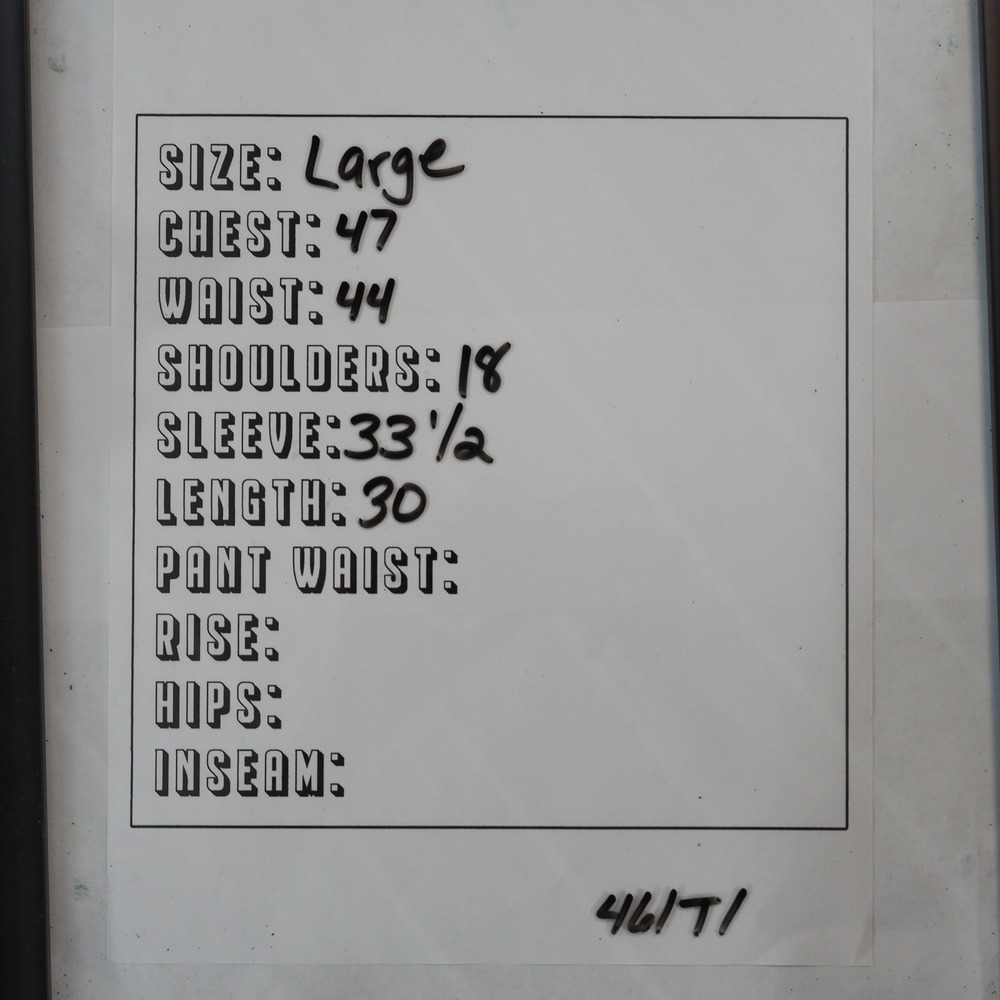 SIZE: Large
CHEST: 47
WAIST: 44
SHOULDERS: 18
SLEEVE: 33 1/2
LENGTH: 30
PANT WAIST:
RISE:
HIPS:
INSEAM:
461T1